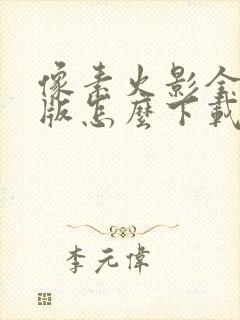 像素火影全
版怎麼下載
李元偉